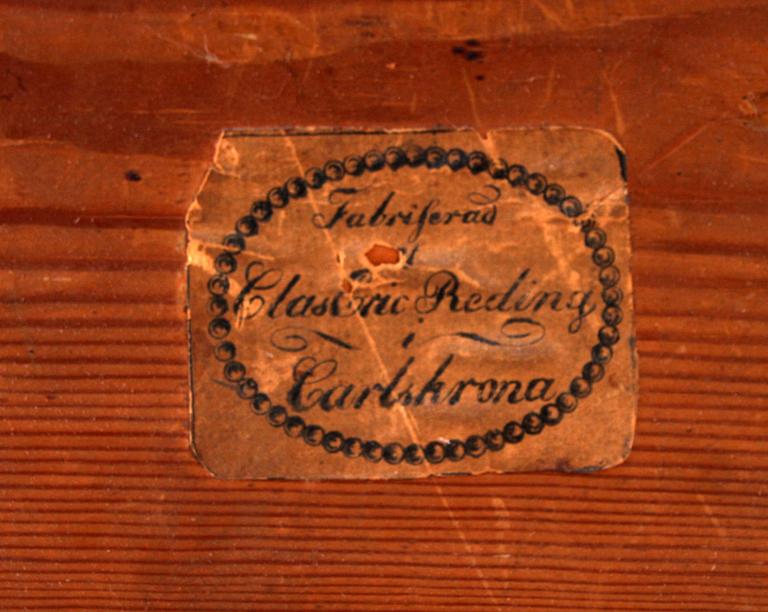 Fabriserad
Clas Eric Reding
i
Carlskrona